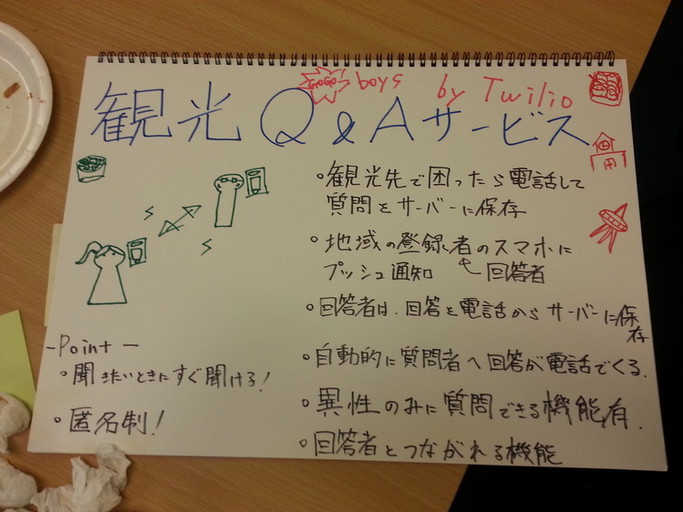 GOGO boys by Twilio
観光Q&Aサービス
・観光先で困ったら電話して
質問をサーバーに保存
・地域の登録者のスマホに
プッシュ通知 回答者
・回答者は、回答を電話からサーバーに保存
・自動的に質問者へ回答が電話でくる.
・異性のみに質問できる機能有.
・回答者とつながれる機能
-Point-
・聞きたいときにすぐ聞ける!
・匿名制!